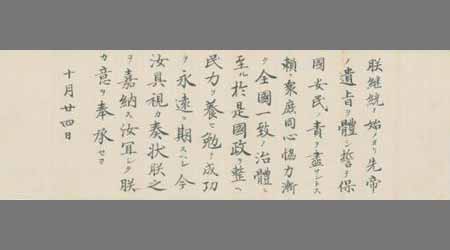 朕継統ノ始メヨリ先帝
ノ遺旨ヲ體シ誓テ保
國安民ノ責ヲ盡サントス
頼ニ衆庶同心協力漸
ク全國一致ノ治體ニ
至ル於是國政ヲ整ヘ
民力ヲ養ヒ勉テ成功
ヲ永遠ニ期スヘシ今
汝具視カ奏状朕之
ヲ嘉納ス汝冝シク朕
カ意ヲ奉承セヨ
十月廿四日